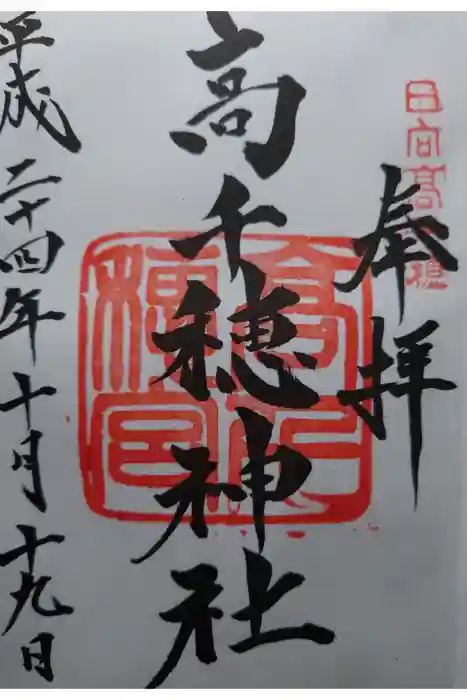 日向高千穂
奉拝
高千穂神社
高千穂宮
平成二十四年十月十九日